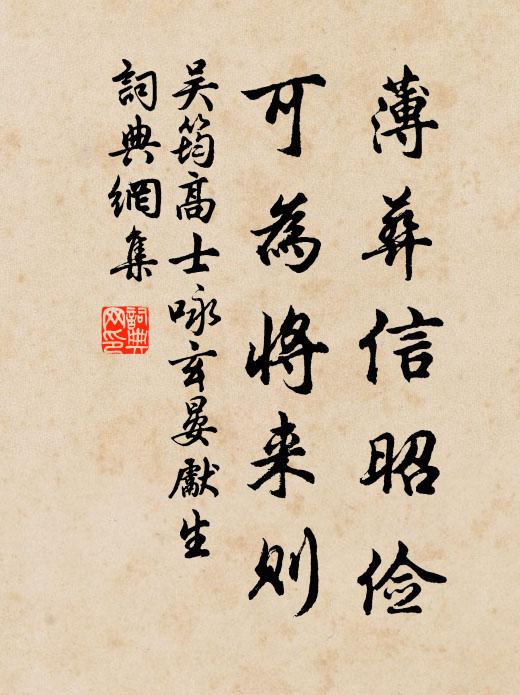 薄葬信昭俭
可為将来则
吴筠高士咏玄晏獻生
詞典網集
詞典網印